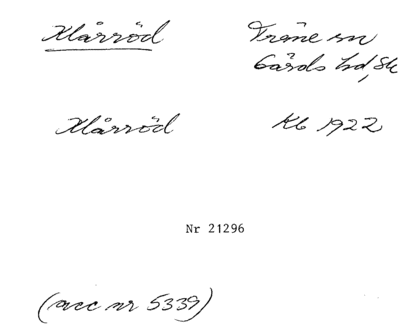 Klårröd Träne sn
Gärds hd, Sk
Klårröd Kb 1922
Nr 21296
(acc nr 5339)